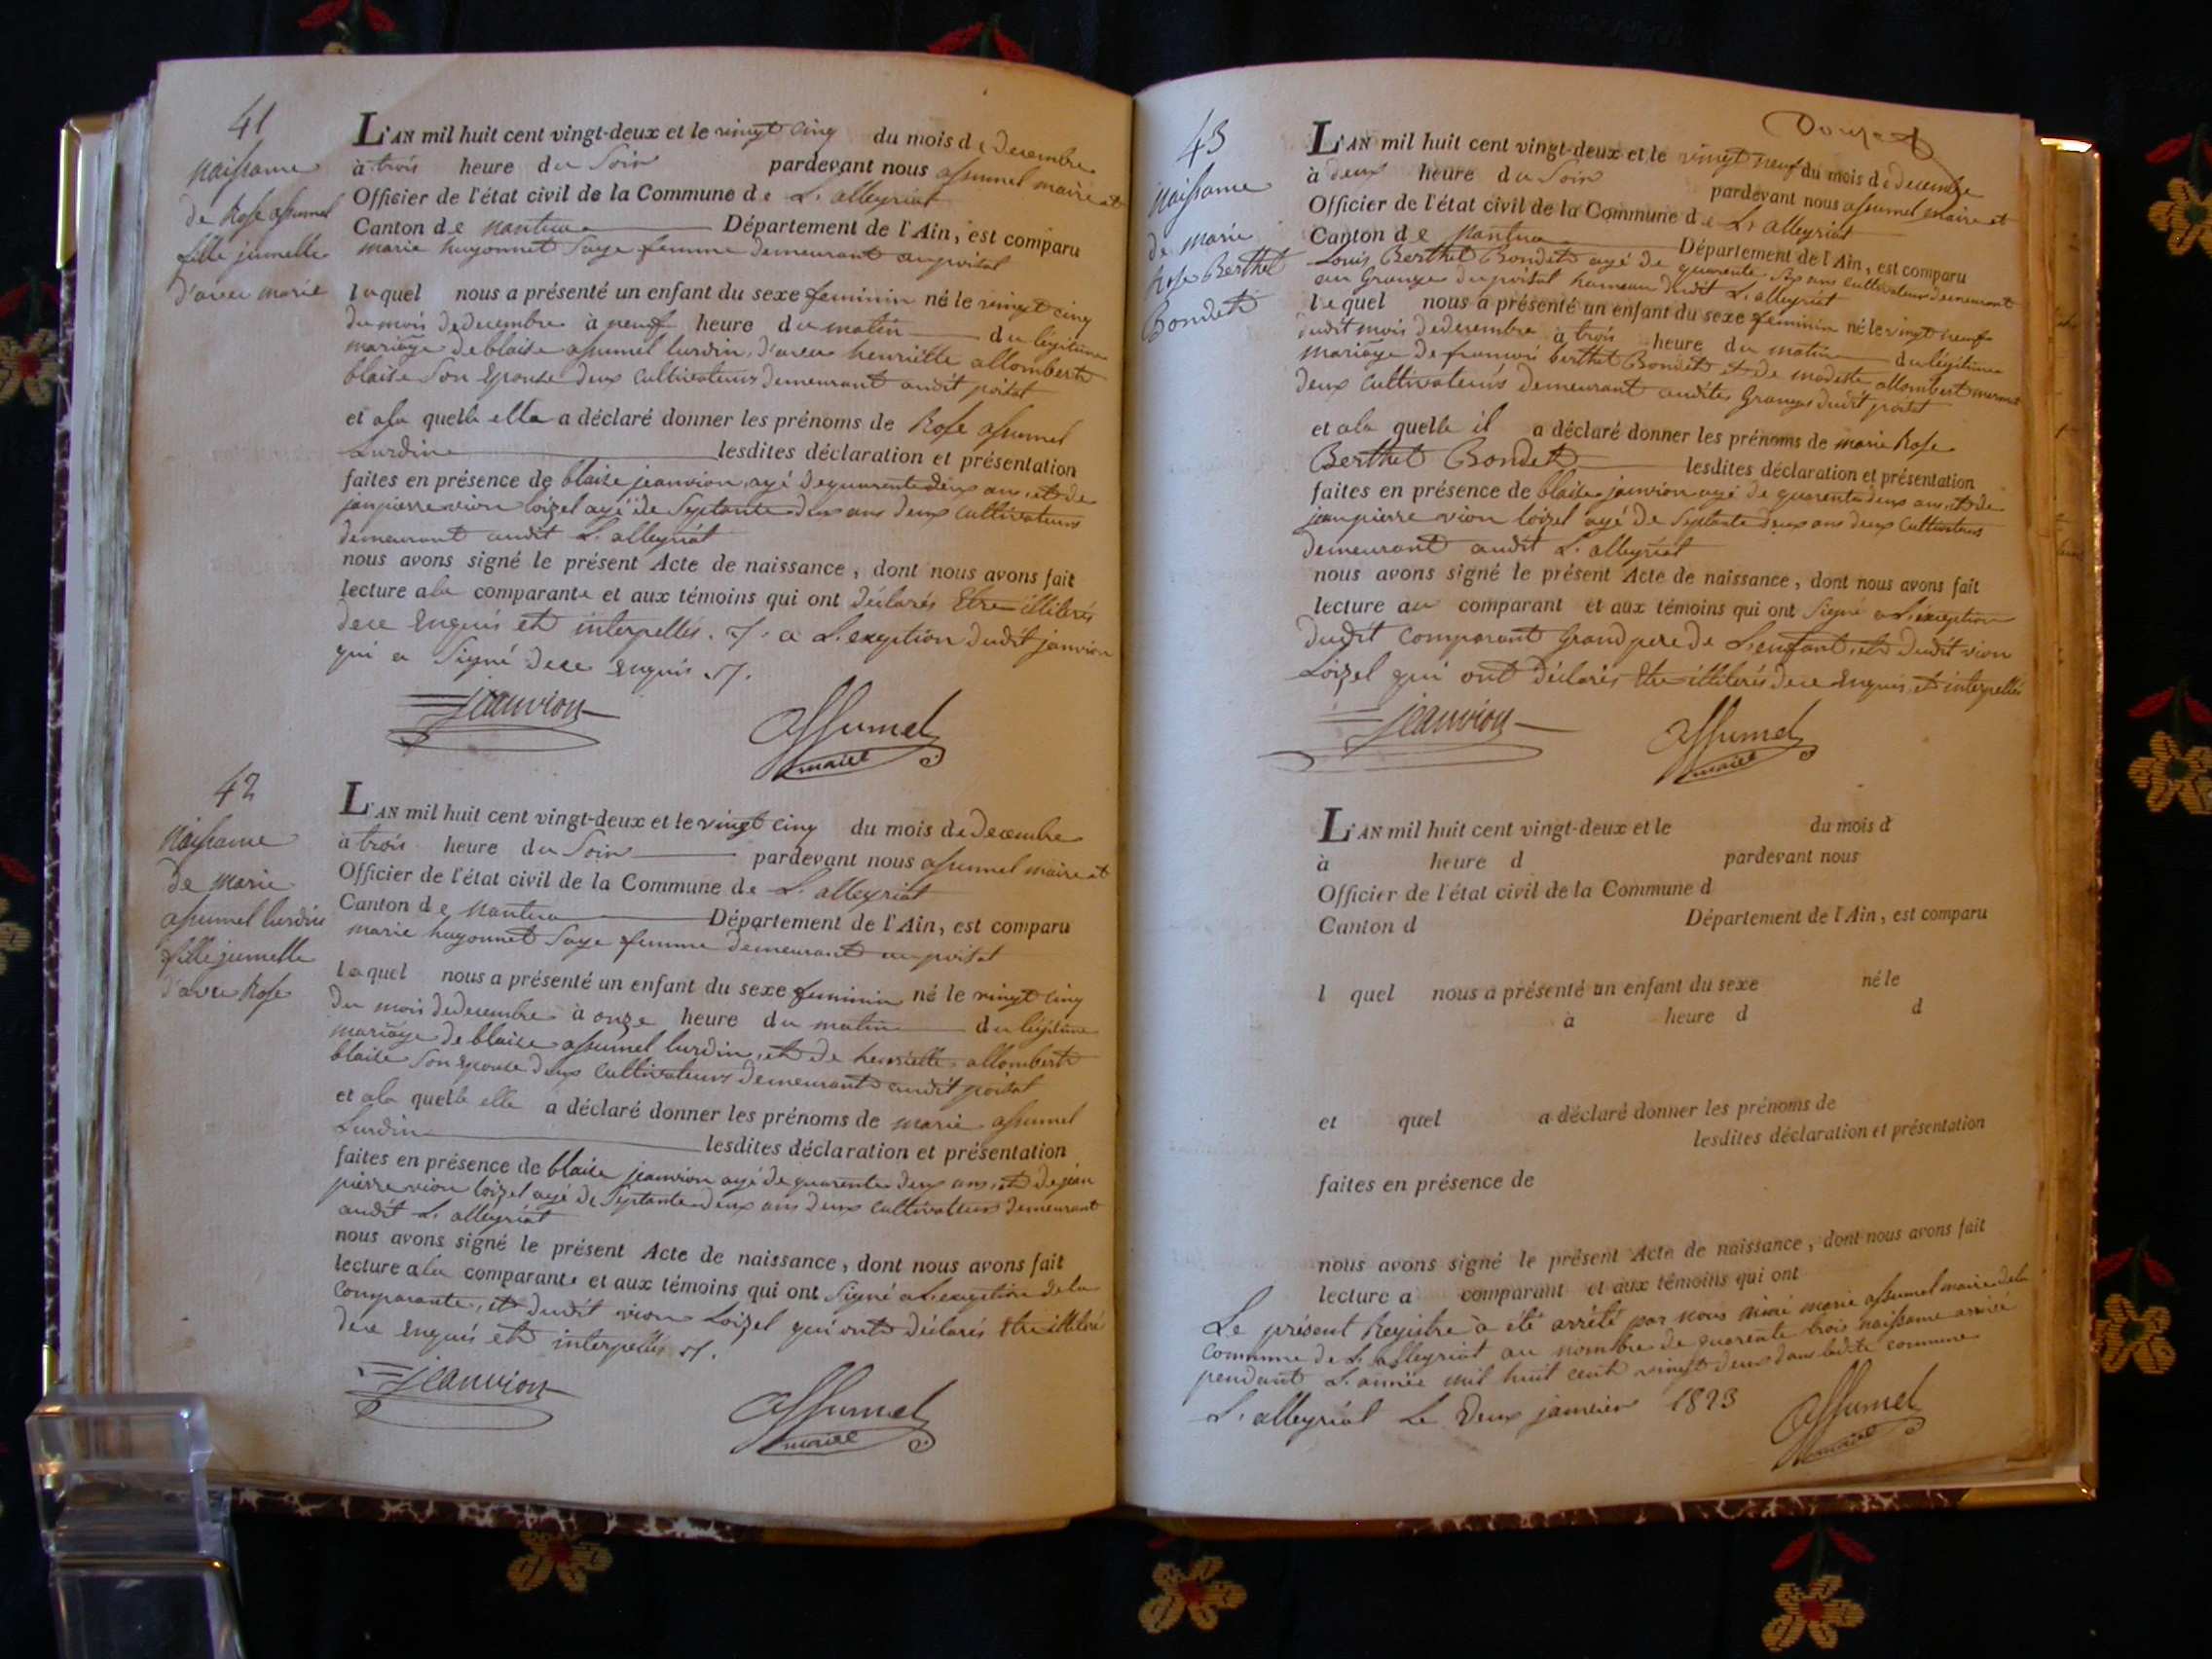 41
Naissance
de Rose assumel
fille jumelle
d'avec marie
L'AN mil huit cent vingt-deux et le vingt cinq du mois de decembre
à trois heure du Soir pardevant nous assumel maire et
Officier de l'état civil de la Commune de L. alleyriat
Canton de Nantua Département de l'Ain, est comparu
marie hugonnet Sage femme demeurant au poisat
laquel nous a présenté un enfant du sexe feminin né le vingt cinq
du mois de decembre à neuf heure du matin du légitime
mariage de blaise assumel lurdin, d'avec henriette allombert
blaise Son Epouse deux cultivateurs demeurant audit poisat
et a la quelle elle a déclaré donner les prénoms de Rose assumel
Lurdin lesdites déclaration et présentation
faites en présence de blaise jeanvion, agé de quarente deux ans, et de
jean pierre vion loizel agé de Septante deux ans deux cultivateurs
demeurant audit L. alleyriat
nous avons signé le présent Acte de naissance, dont nous avons fait
lecture a la comparante et aux témoins qui ont déclarés Etre illiterés
de ce Enquis et interpellés. /. a L'exeption dudit janvion
qui a Signé de ce enquis ./.
jeanvion
assumel
maire
42
Naissance
de marie
assumel lurdin
fille jumelle
d'avec Rose
L'AN mil huit cent vingt-deux et le vingt cinq du mois de decembre
à trois heure du Soir pardevant nous assumel maire et
Officier de l'état civil de la Commune de L. alleyriat
Canton de Nantua Département de l'Ain, est comparu
marie hugonnet Sage femme demeurant au poisat
laquel nous a présenté un enfant du sexe feminin né le vingt cinq
du mois de decembre à onze heure du matin du légitime
mariage de blaise assumel lurdin, et de henriette allombert
blaise Son epouse deux cultivateurs demeurant audit poisat
et a la quelle elle a déclaré donner les prénoms de marie assumel
Lurdin lesdites déclaration et présentation
faites en présence de blaise jeanvion agé de quarente deux ans, et de jean
pierre vion loizel agé de Septante deux ans deux cultivateurs demeurant
audit L. alleyriat
nous avons signé le présent Acte de naissance, dont nous avons fait
lecture a la comparante et aux témoins qui ont Signé a L'exeption de la
comparante, et dudit vion Loizel qui ont déclarés Etre illiteré
de ce Enquis et interpellés ./.
jeanvion
assumel
maire
43
Naissance
de marie
Rose Berthet
Bondet
L'AN mil huit cent vingt-deux et le vingt neuf du mois de decembre
à deux heure du Soir pardevant nous assumel maire et
Officier de l'état civil de la Commune de L. alleyriat
Canton de Nantua Département de l'Ain, est comparu
Louis Berthet Bondet agé de quarente Six ans cultivateur demeurant
au Granges du poisat hameau dudit L. alleyriat
lequel nous a présenté un enfant du sexe feminin né le vingt neuf
dudit mois de decembre à trois heure du matin du légitime
mariage de francois berthet Bondet et de modeste allombert
deux cultivateurs demeurant audites Granges dudit poisat
et a la quelle il a déclaré donner les prénoms de marie Rose
Berthet Bondet lesdites déclaration et présentation
faites en présence de blaise janvion agé de quarente deux ans, et de
jean pierre vion loizel agé de Septante deux ans deux cultivateurs
demeurant audit L. alleyriat
nous avons signé le présent Acte de naissance, dont nous avons fait
lecture au comparant et aux témoins qui ont Signé a L'exeption
dudit comparant Grand pere de L'enfant, et dudit vion
Loizel qui ont déclarés Etre illiterés de ce Enquis et interpellés
jeanvion
assumel
maire
L'AN mil huit cent vingt-deux et le du mois d
à heure d pardevant nous
Officier de l'état civil de la Commune d
Canton d Département de l'Ain, est comparu
l quel nous a présenté un enfant du sexe né le
à heure d d
et quel a déclaré donner les prénoms de
lesdites déclaration et présentation
faites en présence de
nous avons signé le présent Acte de naissance, dont nous avons fait
lecture a comparant et aux témoins qui ont
Le présent Registre a été arrêté par nous aimé marie assumel maire de la
commune de L. alleyriat au nombre de quarente trois naissance arrivé
pendant L'année mil huit cent vingt deux dans ladite commune
L. alleyriat Le Deux janvier 1823
assumel
maire